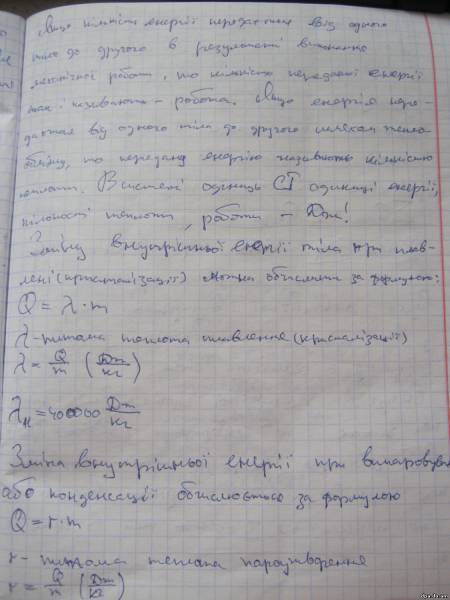 Якщо кількість енергії передається від одного
тіла до другого в результаті виконання
механічної роботи, то кількість переданої енергії
так і називають - робота. Якщо енергія пере-
дається від одного тіла до другого шляхом тепло
обміну, то передану енергію називають кількістю
теплоти. В системі одиниць СІ одиниці енергії,
кількості теплоти, роботи - Дж!
Зміну внутрішньої енергії тіла при плав-
лені (кристалізації) можна обчислити за формулою:
Q = λ · m
λ - питома теплота плавлення (кристалізації)
λ = Q/m (Дж/кг)
= 400000 Дж/кг
Зміна внутрішньої енергії при випаровуван
або конденсації обчислюється за формулою
Q = r · m
r - питома теплота пароутворення
r = Q/m (Дж/кг)